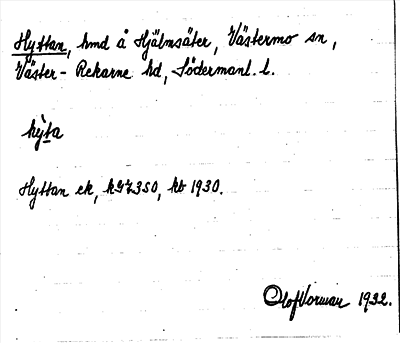 Hyttan, hmd å Hjälmsäter, Västermo sn,
Väster-Rekarne hd, Södermanl. l.
hýta
Hyttan ek, kb 1930.
Olof Vorman 1932.